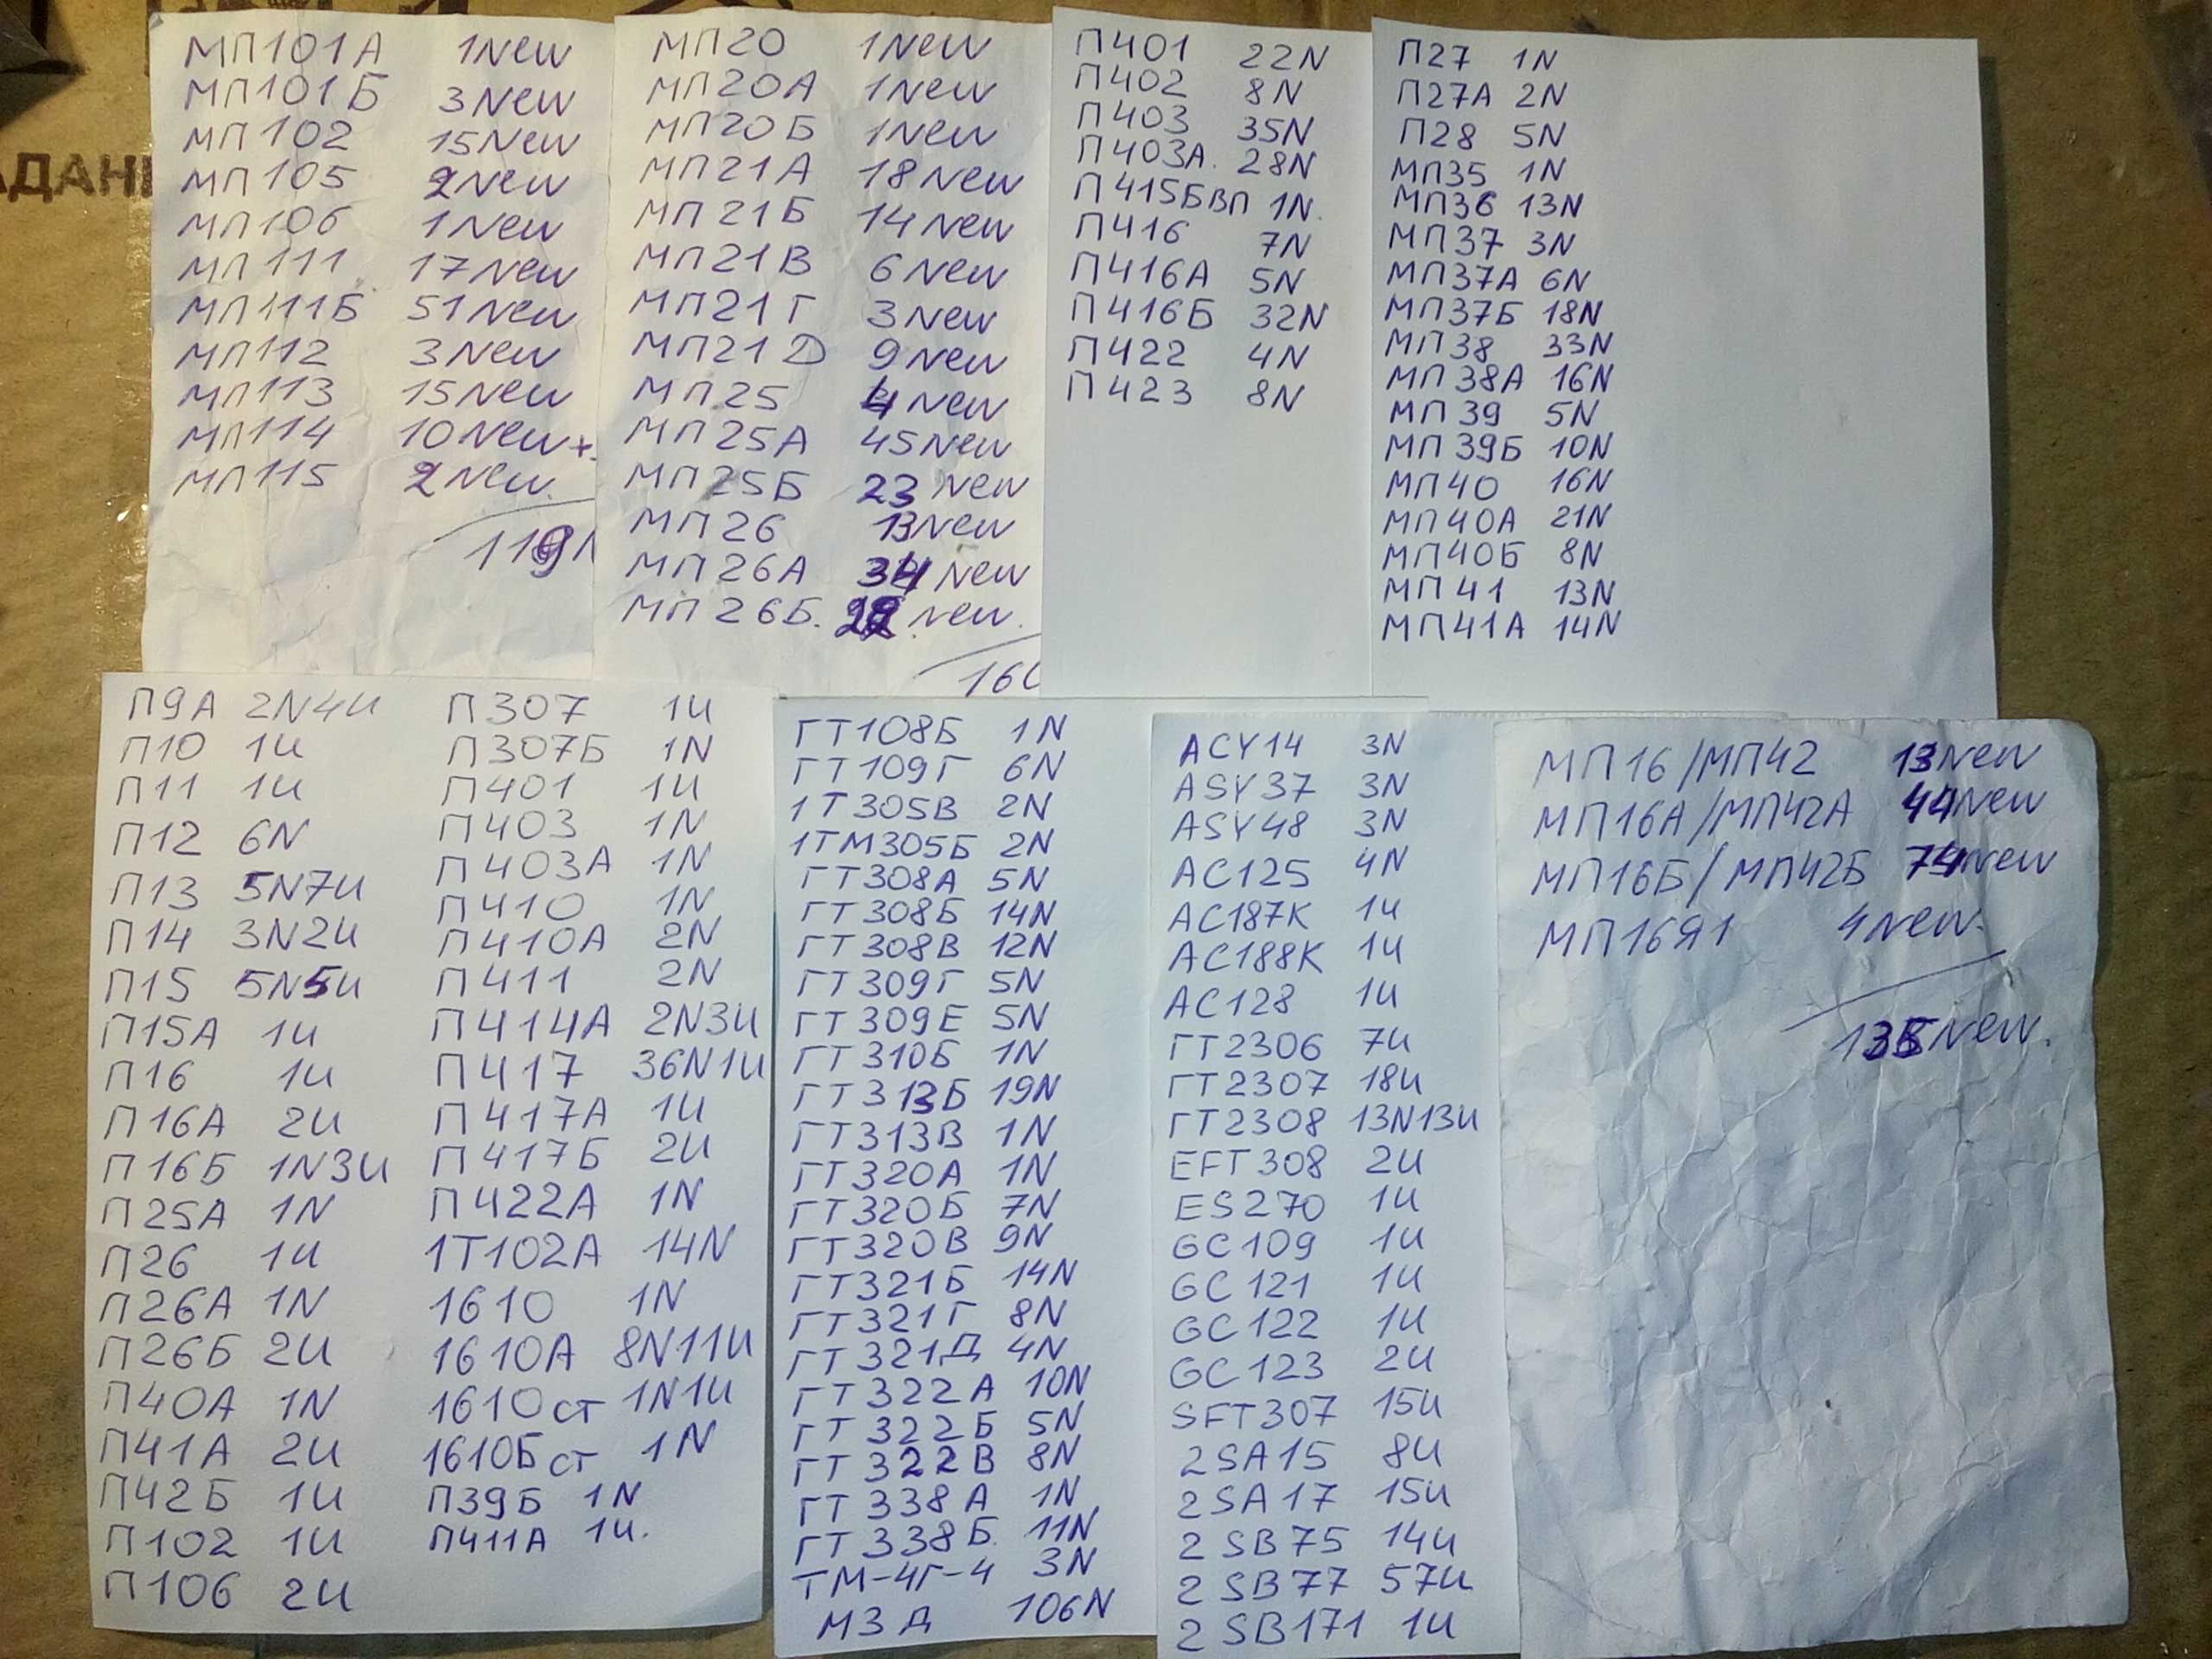 АДАН
МП101А 1New
МП101Б 3New
МП102 15New
МП105 2New
МП106 1New
МП111 17New
МП111Б 51New
МП112 3New
МП113 15New
МП114 10New+
МП115 2New.
119N
МП20 1New
МП20А 1New
МП20Б 1New
МП21А 18New
МП21Б 14New
МП21В 6New
МП21Г 3New
МП21D 9New
МП25 4New
МП25А 45New
МП25Б 23New
МП26 13New
МП26А 34New
МП26Б. New.
П401 22N
П402 8N
П403 35N
П403А. 28N
П415БВП 1N.
П416 7N
П416А 5N
П416Б 32N
П422 4N
П423 8N
П27 1N
П27А 2N
П28 5N
МП35 1N
МП36 13N
МП37 3N
МП37А 6N
МП37Б 18N
МП38 33N
МП38А 16N
МП39 5N
МП39Б 10N
МП40 16N
МП40А 21N
МП40Б 8N
МП41 13N
МП41А 14N
П9А 2N4U
П10 1U
П11 1U
П12 6N
П13 5N7U
П14 3N2U
П15 5N5U
П15А 1U
П16 1U
П16А 2U
П16Б 1N3U
П25А 1N
П26 1U
П26А 1N
П26Б 2U
П40А 1N
П41А 2U
П42Б 1U
П102 1U
П106 2U
П307 1U
П307Б 1N
П401 1U
П403 1N
П403А 1N
П410 1N
П410А 2N
П411 2N
П414А 2N3U
П417 36N1U
П417А 1U
П417Б 2U
П422А 1N
1Т102А 14N
1610 1N
1610А 8N11U
1610ст 1N1U
1610Бст 1N
П39Б 1N
П411А 1U.
ГТ108Б 1N
ГТ109Г 6N
1Т305В 2N
1ТМ305Б 2N
ГТ308А 5N
ГТ308Б 14N
ГТ308В 12N
ГТ309Г 5N
ГТ309Е 5N
ГТ310Б 1N
ГТ313Б 19N
ГТ313В 1N
ГТ320А 1N
ГТ320Б 7N
ГТ320В 9N
ГТ321Б 14N
ГТ321Г 8N
ГТ321Д 4N
ГТ322А 10N
ГТ322Б 5N
ГТ322В 8N
ГТ338А 1N
ГТ338Б. 11N
ТМ-4Г-4 3N
МЗД 106N
ACY14 3N
ASY37 3N
ASY48 3N
AC125 4N
AC187K 1U
AC188K 1U
AC128 1U
ГТ2306 7U
ГТ2307 18U
ГТ2308 13N13U
EFT308 2U
ES270 1U
GC109 1U
GC121 1U
GC122 1U
GC123 2U
SFT307 15U
2SA15 8U
2SA17 15U
2SB75 14U
2SB77 57U
2SB171 1U
МП16/МП42 13New
МП16А/МП42А 44New
МП16Б/МП42Б 74New
МП16Я1 4New.
135New.